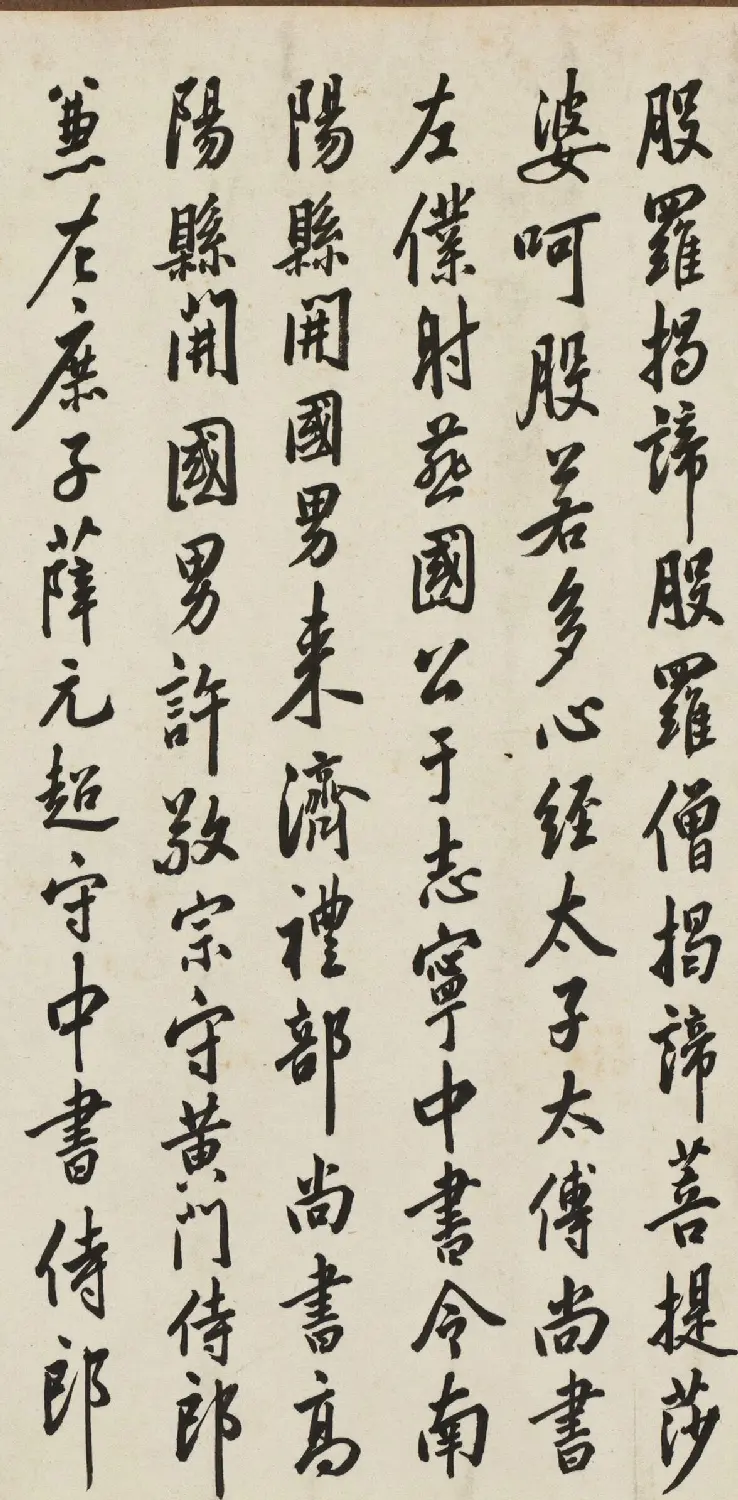 般羅揭諦般羅僧揭諦菩提莎
婆呵般若多心經太子太傅尚書
左僕射燕國公于志寧中書令南
陽縣開國男来濟禮部尚書高
陽縣開國男許敬宗守黃門侍郎
兼左庶子薛元超守中書侍郎